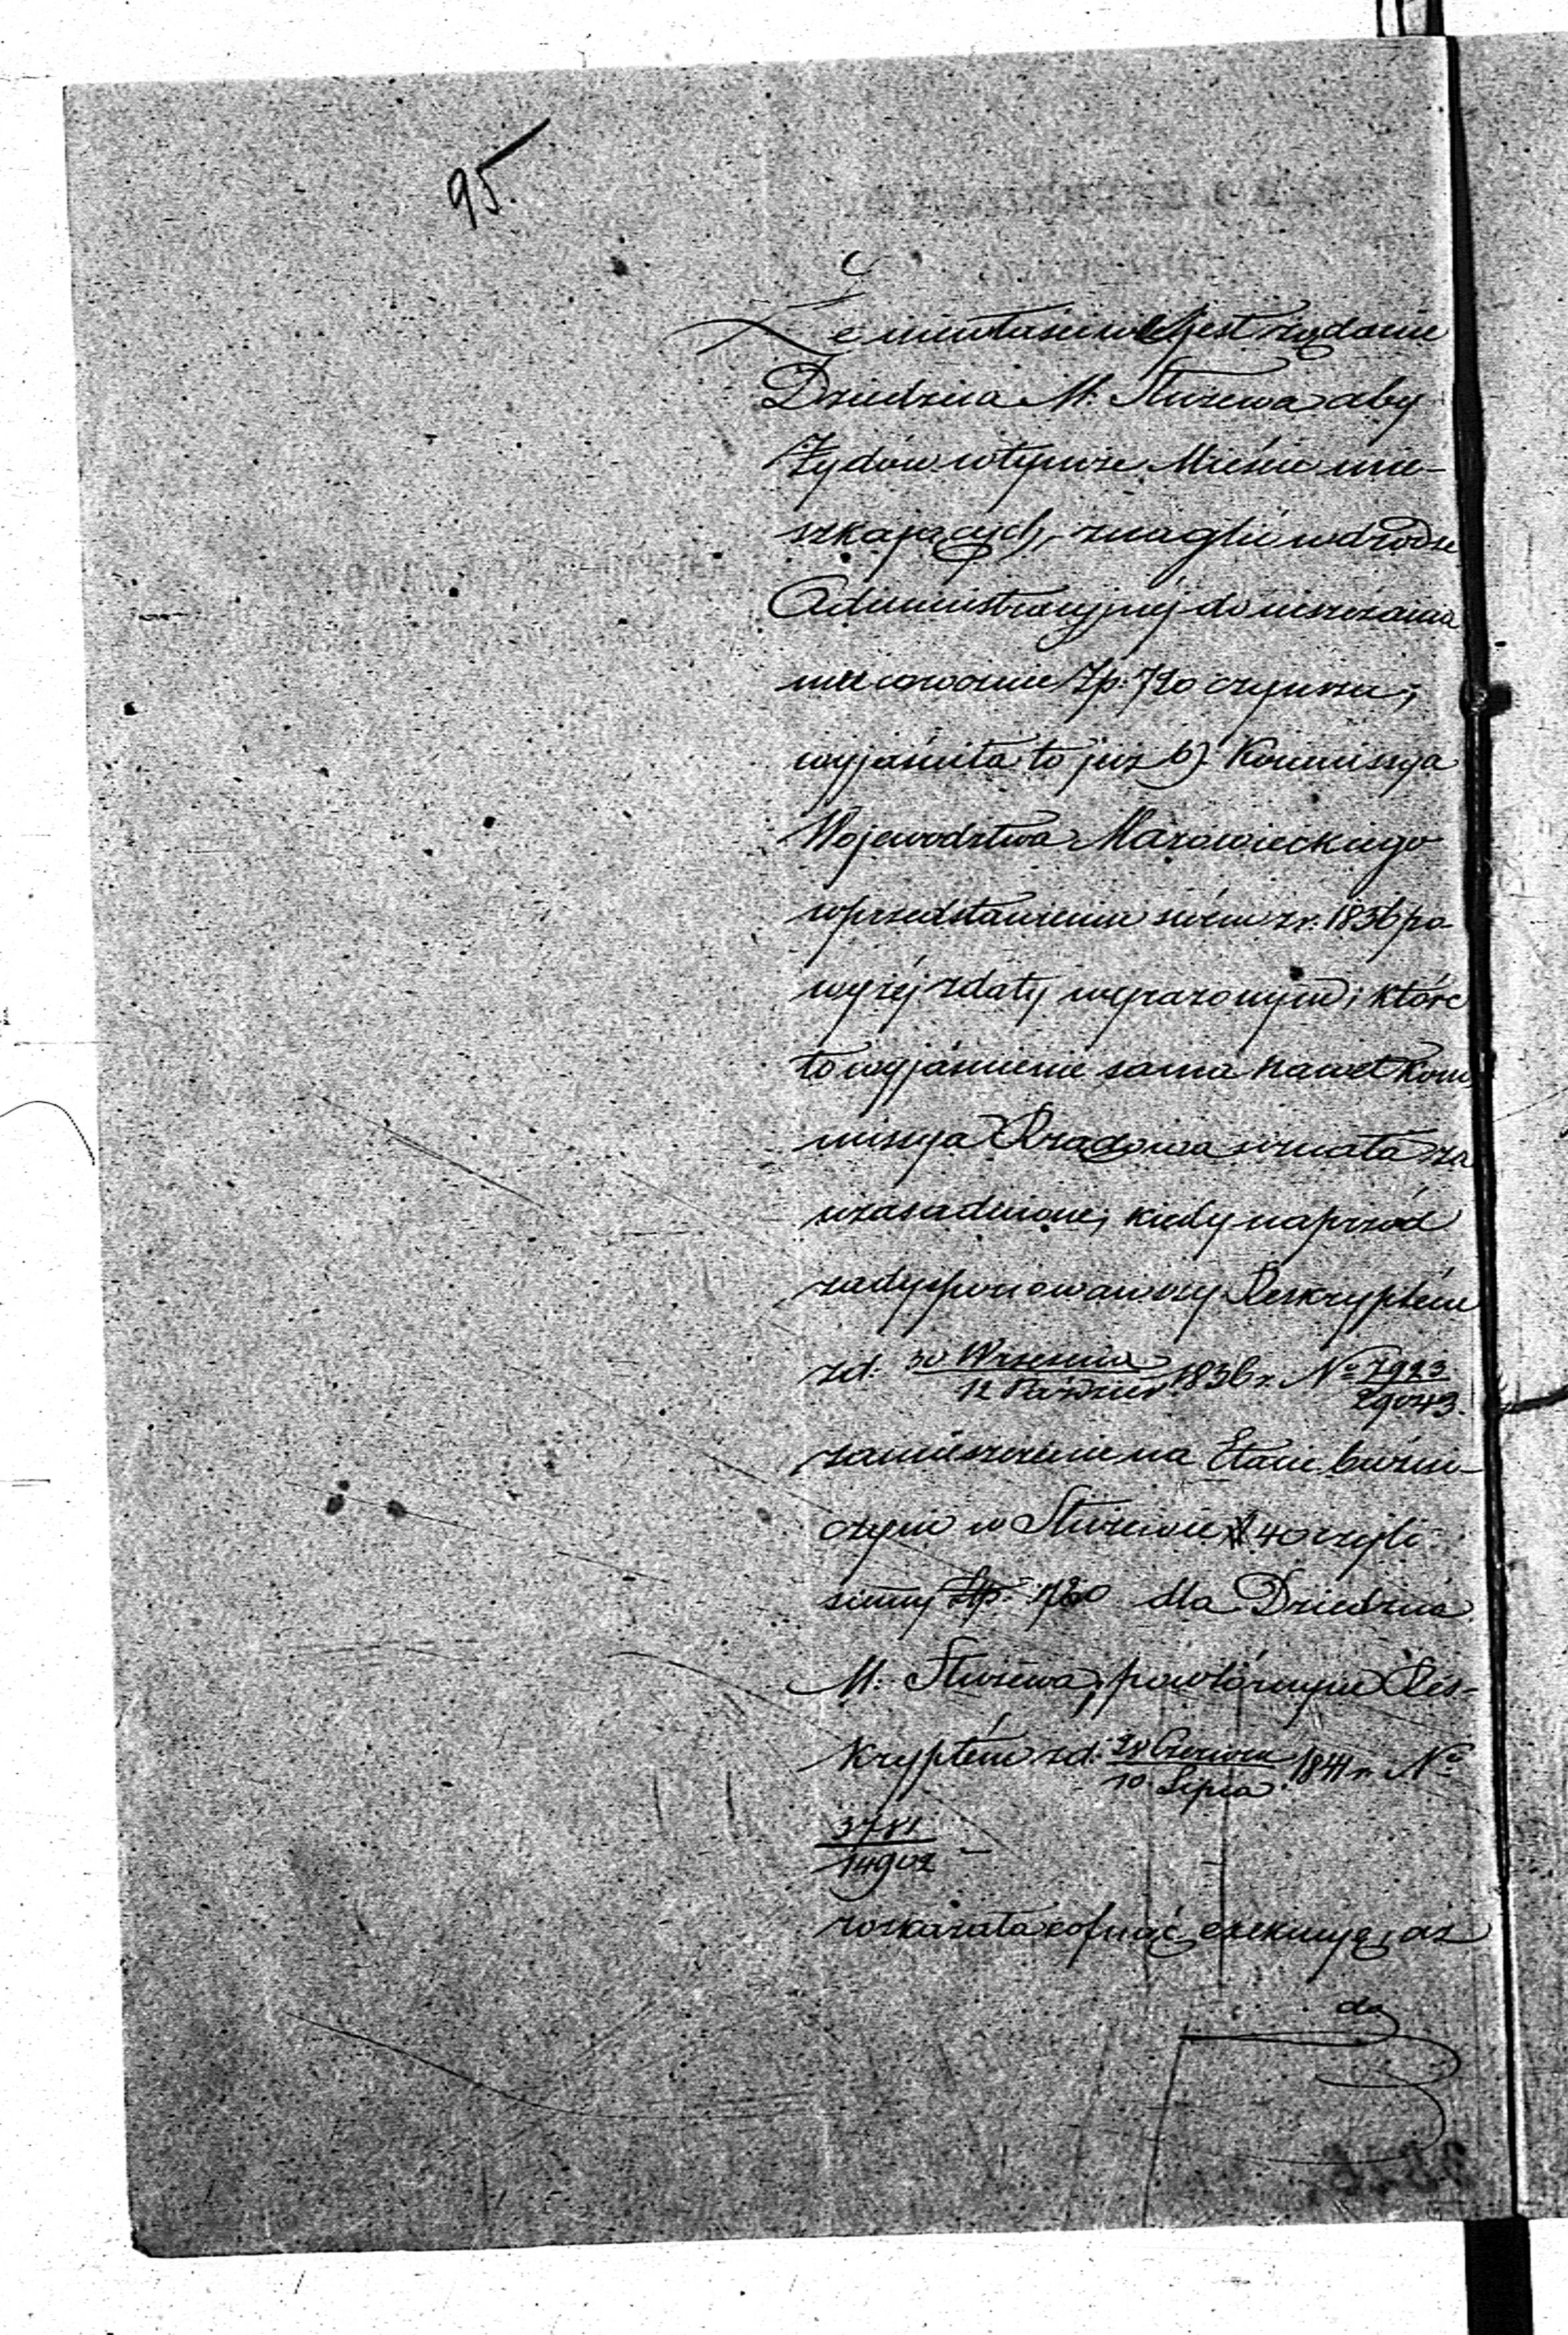 95.
Że niewłaściwe jest żądanie
Dziedzica M. Służewa aby
Żydów w tymże Mieście mie-
szkających, znaglić w drodze
Administracyjnej do uiszczania
mu corocznie Zp: 720 czynszu;
wyjaśniła to już b) Kommissya
Województwa Mazowieckiego
w przedstawieniu swém z r. 1836 po-
wyżéj z daty wyrażonym; które
to wyjaśnienie sama nawet Kom
missya Rządowa uznała za
uzasadnione; kiedy naprzód
zadysponowawszy Reskryptém
z d. 30 Września / 12 Paździer 1836 r. No 7923 / 29043.
zamieszczenie na Etacie bużni-
czym w Służewie 40 czyli
summy Zp: 720 dla Dziedzica
M: Służewa; powtórnym Res-
kryptém z d. 28 Czerwca / 10 Lipca 1841 r. No
3781 / 14902 –
rozkazała cofnąć exekucyą, aż
do